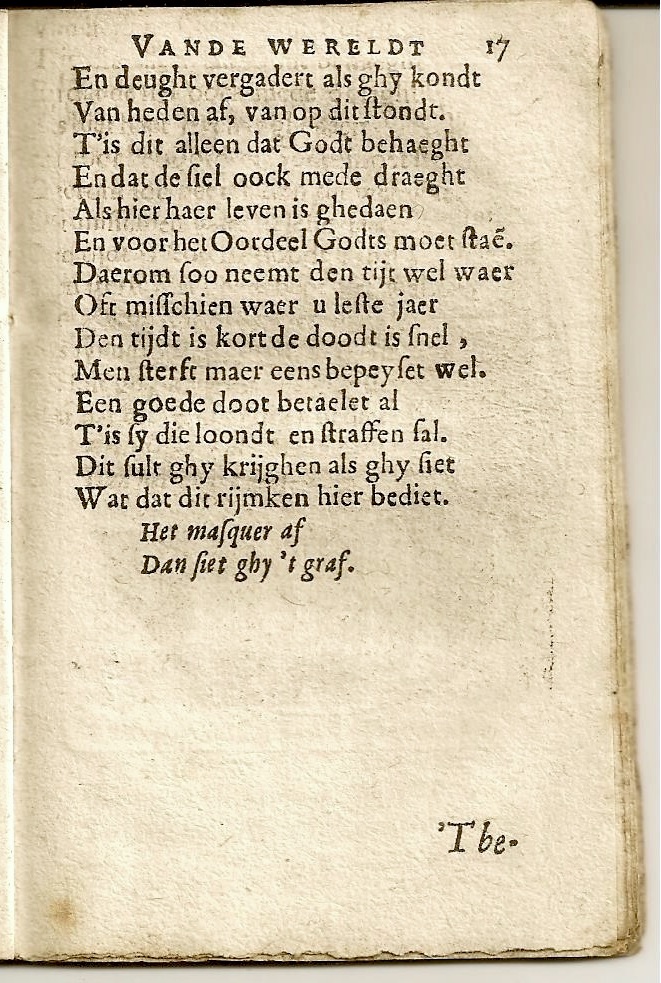 VANDE WERELDT 17
En deught vergadert als ghy kondt
Van heden af, van op dit ſtondt.
T'is dit alleen dat Godt behaeght
En dat de ſiel oock mede draeght
Als hier haer leven is ghedaen
En voor het Oordeel Godts moet ſtaē.
Daerom ſoo neemt den tijt wel waer
Oft miſſchien waer u leſte jaer
Den tijdt is kort de doodt is ſnel,
Men ſterft maer eens bepeyſet wel.
Een goede doot betaelet al
T'is ſy die loondt en ſtraffen ſal.
Dit ſult ghy krijghen als ghy ſiet
Wat dat dit rijmken hier bediet.
Het maſquer af
Dan ſiet ghy 't graf.
'T be-